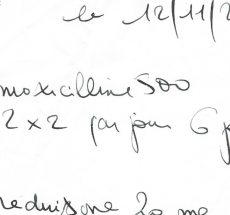 le 12/11/2
moxicilline 500
2 x 2 par jour 6 j
rednisone 20 mg